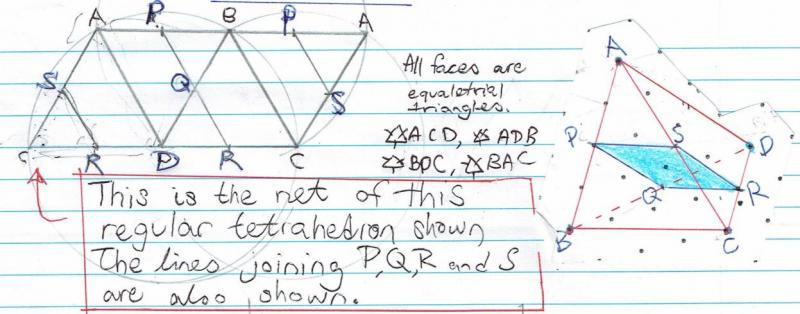 P B P A
A
S Q S
C R D R C
All faces are
equaletrial
triangles.
ACD, ADB
BDC, BAC
This is the net of this
regular tetrahedron shown
The lines joining P,Q,R and S
are also shown.
A
P S D
Q R
B C